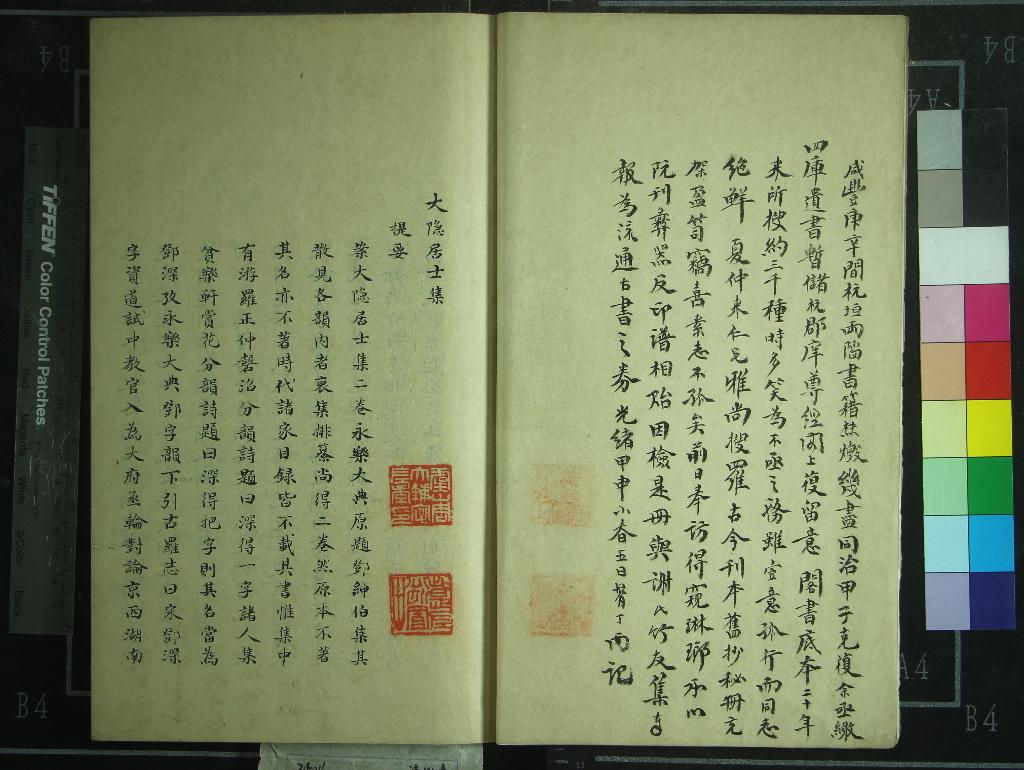 咸豐庚辛間杭垣兩陷書籍焚燬幾盡同治甲子克復余亟繳
四庫遺書暫儲杭郡庠尊經閣上復留意 閣書底本二十年
来所搜約二千種時多笑為不亟之務雖空意孤行而同志
絶鮮 夏仲来仁兄雅尚搜羅古今刊本舊抄秘冊充
架盈笥竊喜素志不孤矣前日奉訪得窺琳瑯承以
阮刊彝器及印譜相貽因檢是冊與謝氏竹友集
報為流通古書之券光緒甲申小春五日胥丁丙記
大隐居士集
提要
案大隐居士集二卷永樂大典原題鄧紳伯集其
散見各韻内者裒集排纂尚得二卷然原本不著
其名亦不著時代諸家目録皆不載其書惟集中
有游羅正仲磬沼分韻詩題曰深得一字諸人集
貧樂軒賞花分韻詩題曰深得把字則其名當為
鄧深攷永樂大典鄧字韻下引古羅志曰宋鄧深
字資道試中教官入為大府丞輪對論京西湖南
TIFFEN Color Control Patches
B4
B4
A4
A4
B4
B4